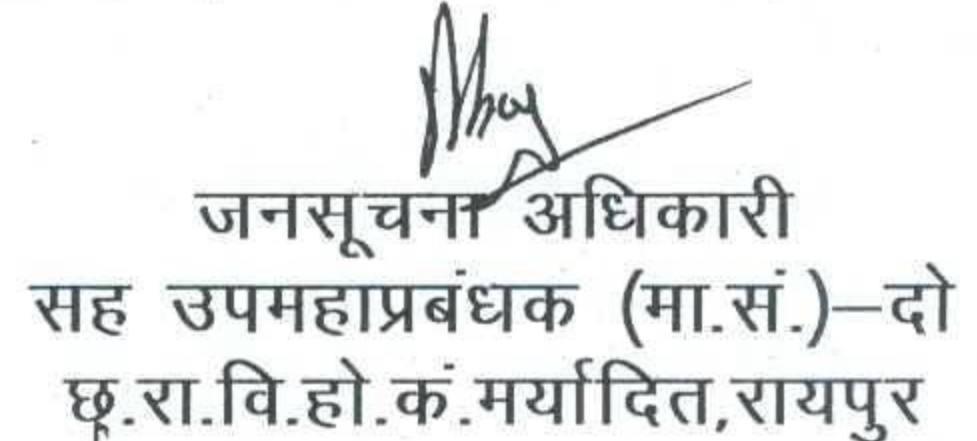 जनसूचना अधिकारी
सह उपमहाप्रबंधक (मा.सं.)–दो
छ.रा.वि.हो.कं.मर्यादित,रायपुर